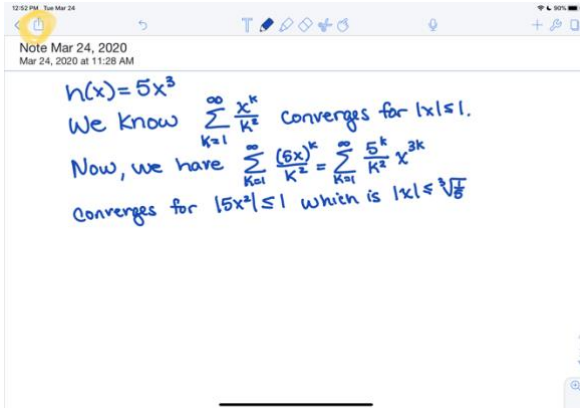 12:52 PM Tue Mar 24
90%
Note Mar 24, 2020
Mar 24, 2020 at 11:28 AM
h(x)=5x³
We know ∑_{k=1}^{∞} x^k/k² converges for |x|≤1.
Now, we have ∑_{k=1}^{∞} (5x)^k/k² = ∑_{k=1}^{∞} 5^k/k² x^{3k}
Converges for |5x²|≤1 which is |x|≤ ∛(1/5)